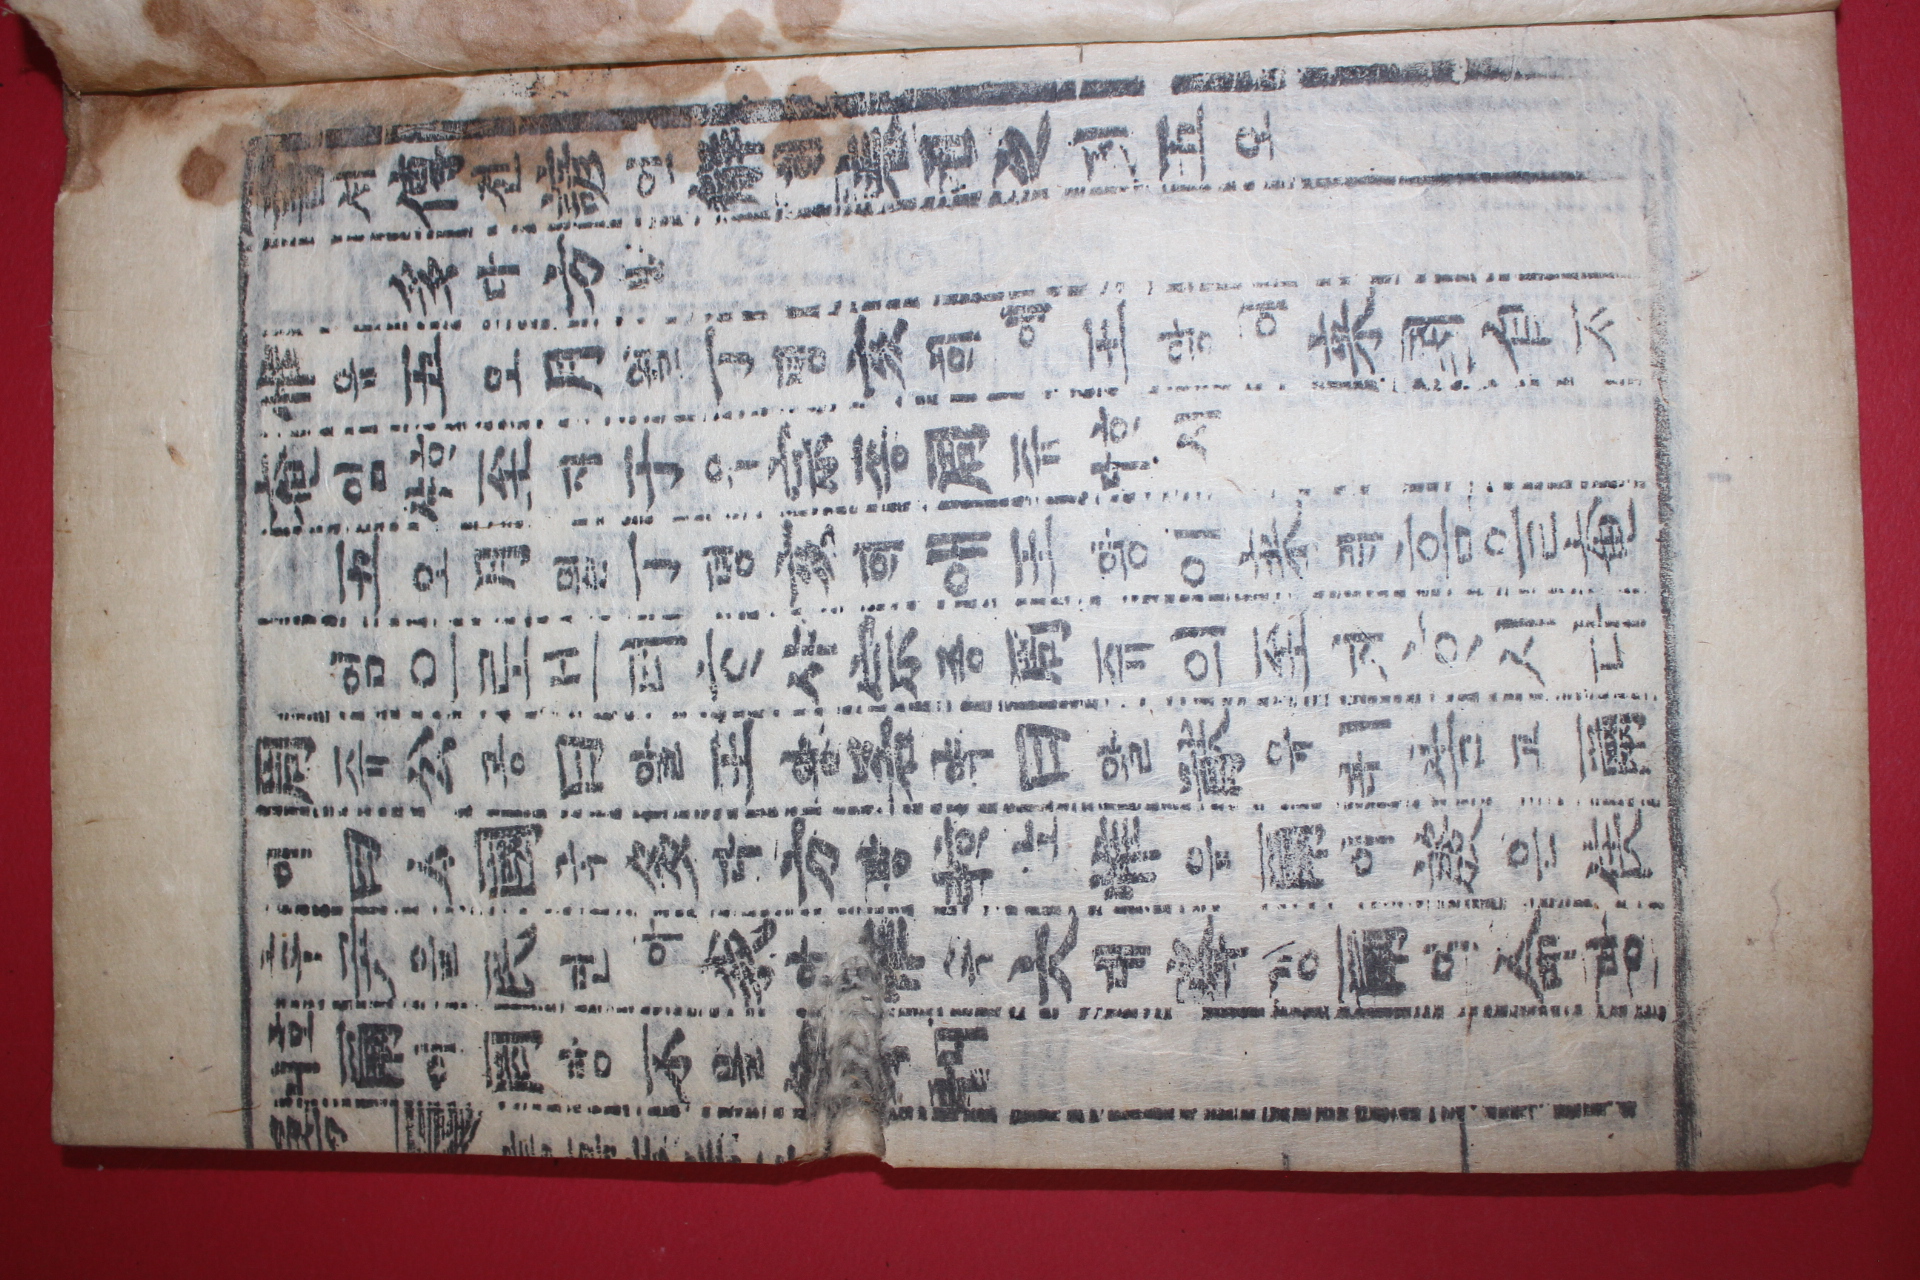 書셔傳젼諺언解ᄒᆡ卷권之지五오
多다方방
惟유五오月월丁뎡亥ᄒᆡ王왕이來ᄅᆡ自ᄌᆞ
奄엄ᄒᆞ샤至지于우宗종周쥬ᄒᆞ시다
五오月월丁뎡亥ᄒᆡ애王왕이來ᄅᆡ홈을奄
엄으로브터ᄒᆞ샤宗종周쥬의이至지ᄒᆞ시다
周쥬公공曰왈王왕若약曰왈猷유告고爾
이四ᄉᆞ國국多다方방ᄒᆞ노라惟유爾이殷은侯
후尹윤民민아我아惟유大대降강爾이命명
ᄒᆞ니爾이罔망不블知